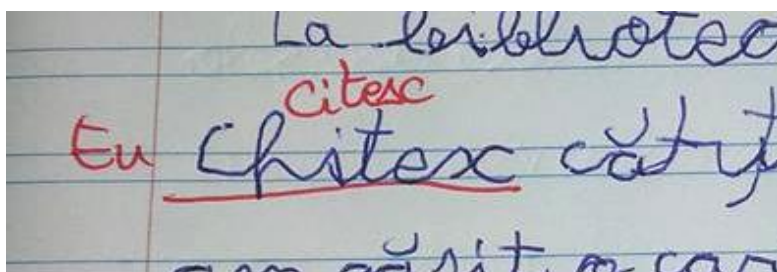 La bibliotec
citesc
Eu Chitesc căt
am găsit o car